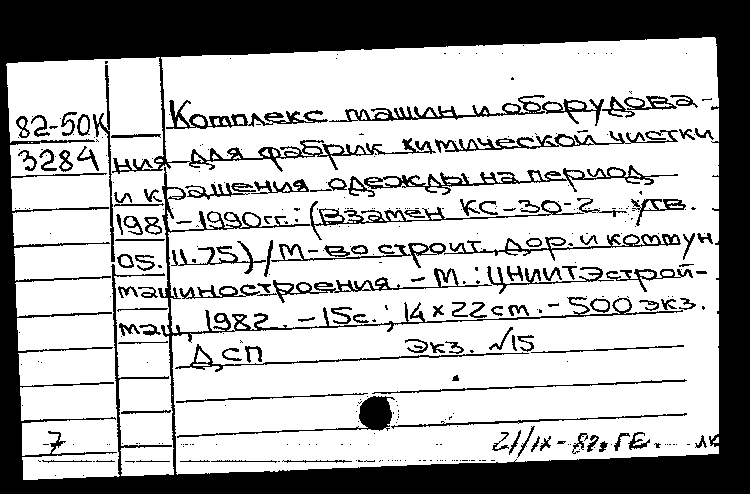 82-50К Комплекс машин и оборудова-
3284 ния для фабрик химической чистки
и крашения одежды на период
1981-1990гг.: (Взамен КС-30-2, утв.
05.11.75) / М-во строит., дор. и коммун.
машиностроения. - М.: ЦНИИТЭстрой-
маш, 1982. - 15с.; 14×22cm. - 500 экз.
ДСП экз. №15
7 21/IX-82. ГЕ. лк